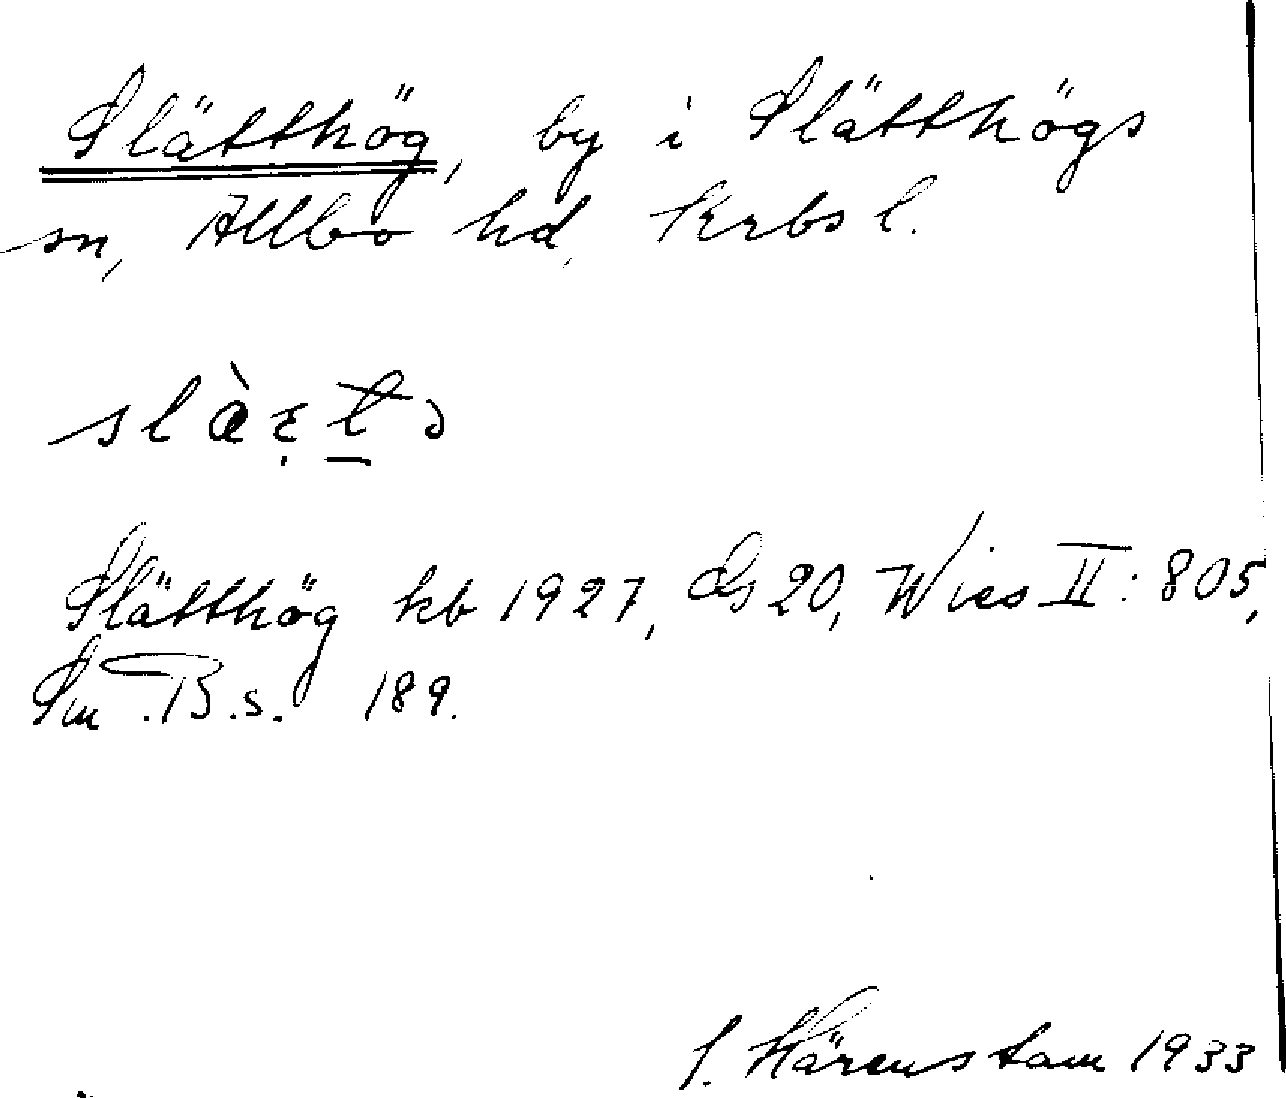 Slätthög, by i Slätthögs
sn, Allbo hd, Krbs l.
Slätthög kb 1927, GS 20, Wies II: 805,
Sm B.s. 189.
Härenstam 1933